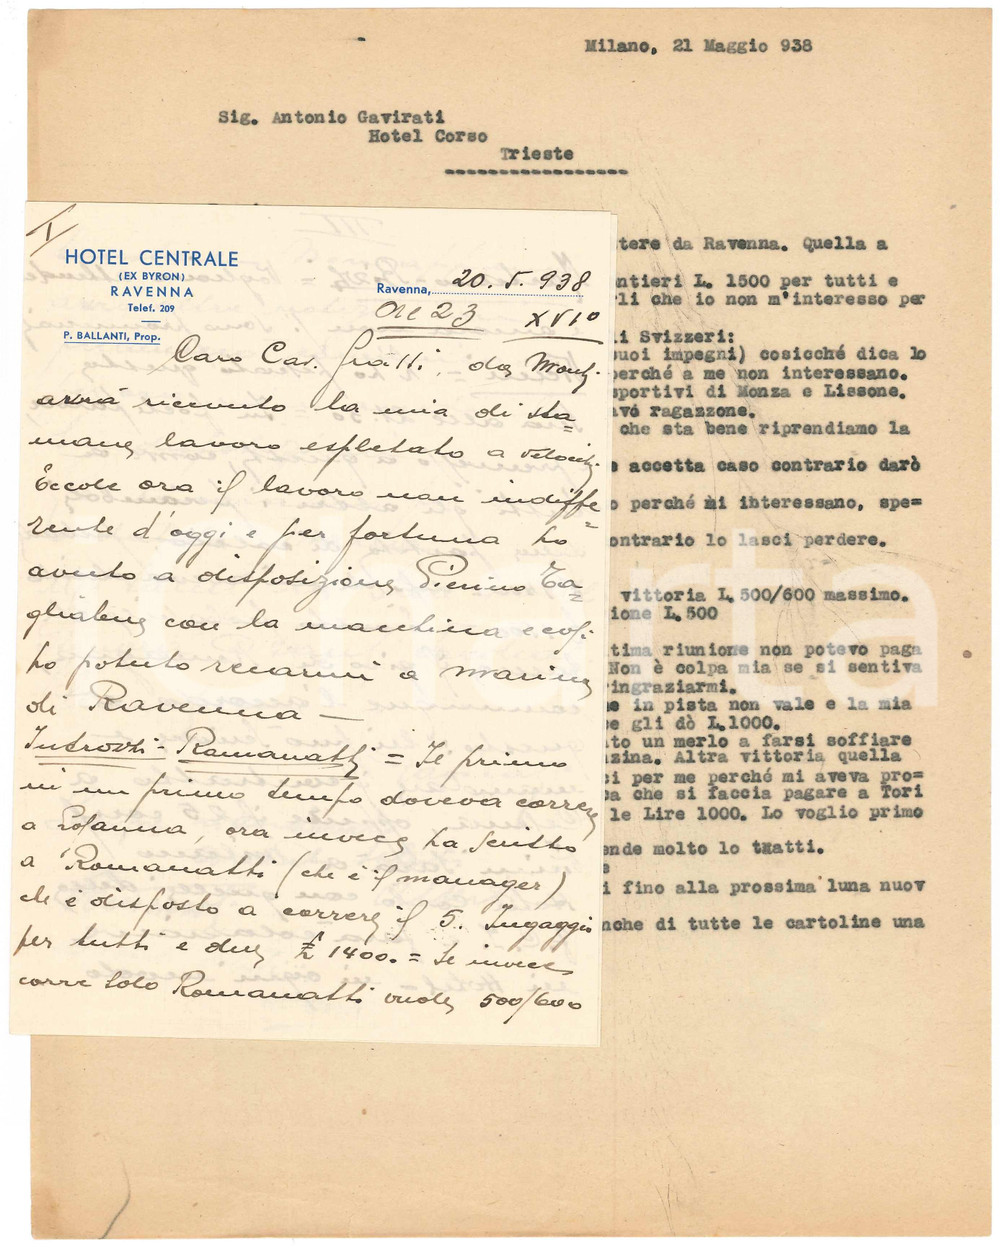 Milano, 21 Maggio 938
Sig. Antonio Gavirati
Hotel Corso
Trieste
I/
HOTEL CENTRALE
(EX BYRON)
RAVENNA
Telef. 209
P. BALLANTI, Prop.
Ravenna, 20. 5. 938
Ore 23 XVIº
Caro Cav. Gratti, da
avrà ricevuto la mia di sta=
mane lavoro espletato a velocità.
Eccole ora il lavoro non indiffe=
rente d'oggi e per fortuna ho
avuto a disposizione Pierino Ta=
gliabue con la macchina e così
ho potuto recarmi a Marina
di Ravenna —
Introzzi - Romanatti = Il primo
in un primo tempo doveva correre
a Losanna, ora invece ha scritto
a Romanatti (che è il manager)
che è disposto a correre il 5. Ingaggio
per tutti e due £ 1400. = Se invece
corre solo Romanatti vuole 500/600
tere da Ravenna. Quella a
ntieri L. 1500 per tutti e
li che io non m'interesso per
i Svizzeri:
uoi impegni) cosicché dica lo
perché a me non interessano.
sportivi di Monza e Lissone.
avé ragazzone.
che sta bene riprendiamo la
e accetta caso contrario darò
o perché mi ibteressano, spe=
ontrario lo lasci perdere.
vittoria L. 500/600 massimo.
ione L.500
tima riunione non potevo paga
Non è colpa mia se si sentiva
ingraziarmi.
e in pista non vale e la mia
e gli dò L.1000.
to un merlo a farsi soffiare
zina. Altra vittoria quella
i per me perché mi aveva pro=
a che si faccia pagare a Tori
le Lire 1000. Lo voglio primo
ende molto lo tratti.
e
i fino alla prossima luna nuov
nche di tutte le cartoline una